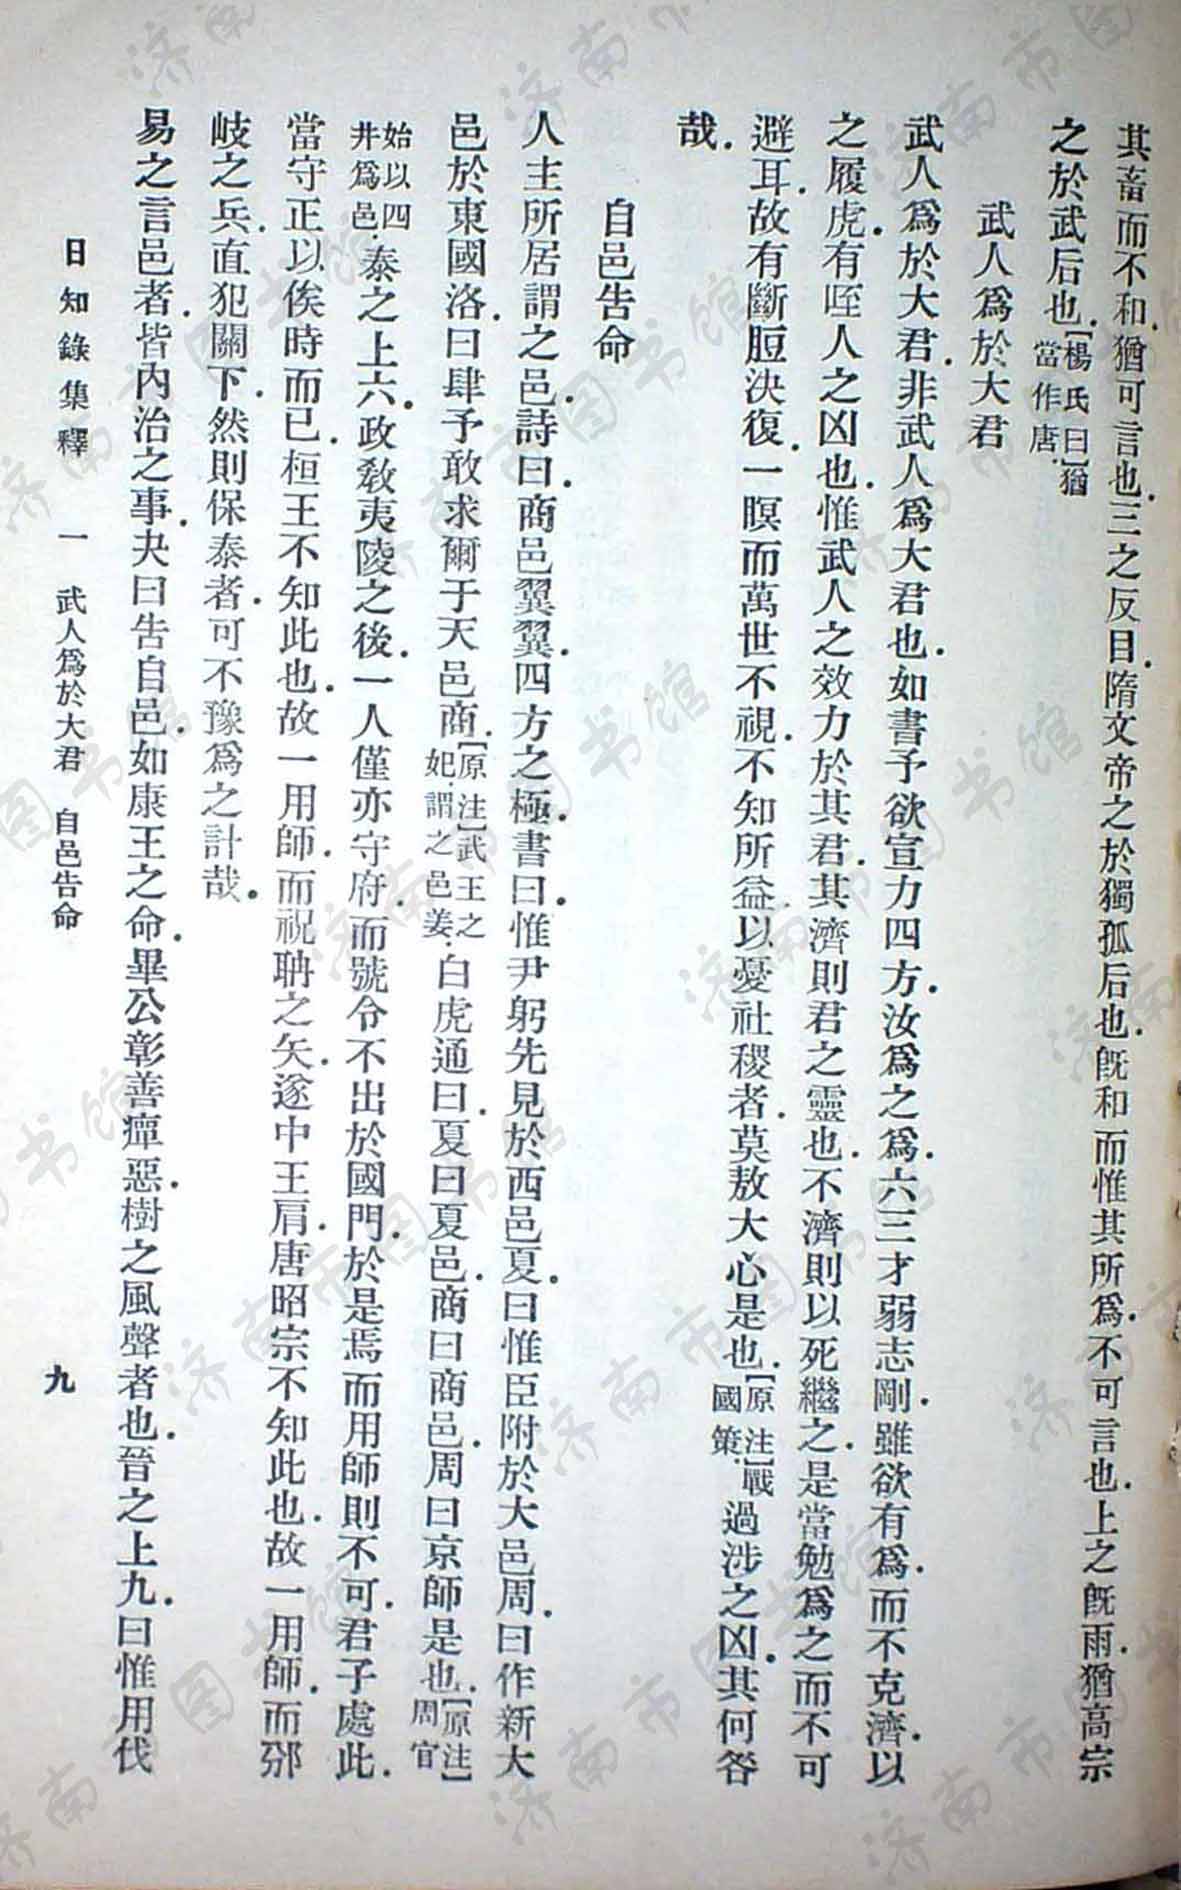 其畜而不和.猶可言也.三之反目.隋文帝之於獨孤后也.旣和而惟其所爲.不可言也.上之旣雨.猶高宗
之於武后也.【楊氏曰】猶當作唐.
武人爲於大君
武人爲於大君.非武人爲大君也.如書予欲宣力四方.汝爲之爲.六三才弱志剛.雖欲有爲.而不克濟.以
之履虎.有咥人之凶也.惟武人之效力於其君.其濟則君之靈也.不濟則以死繼之.是當勉爲之而不可
避耳.故有斷脰決復.一瞑而萬世不視.不知所益以憂社稷者.莫敖大心是也.【原注】戰國策.過涉之凶.其何咎
哉.
自邑告命
人主所居謂之邑.詩曰.商邑翼翼.四方之極.書曰.惟尹躬先見於西邑夏.曰惟臣附於大邑周.曰作新大
邑於東國洛.曰肆予敢求爾于天邑商.【原注】武王之妃.謂之邑姜.白虎通曰.夏曰夏邑.商曰商邑.周曰京師是也.【原注】周官
始以四井爲邑.泰之上六.政敎夷陵之後.一人僅亦守府.而號令不出於國門.於是焉而用師則不可.君子處此.
當守正以俟時而已.桓王不知此也.故一用師.而祝聃之矢.遂中王肩.唐昭宗不知此也.故一用師.而邠
岐之兵.直犯關下.然則保泰者.可不豫爲之計哉.
易之言邑者.皆內治之事.夬曰告自邑.如康王之命.畢公彰善癉惡.樹之風聲者也.晉之上九.曰惟用伐
日知錄集釋 一 武人爲於大君 自邑告命 九
济南市图书馆